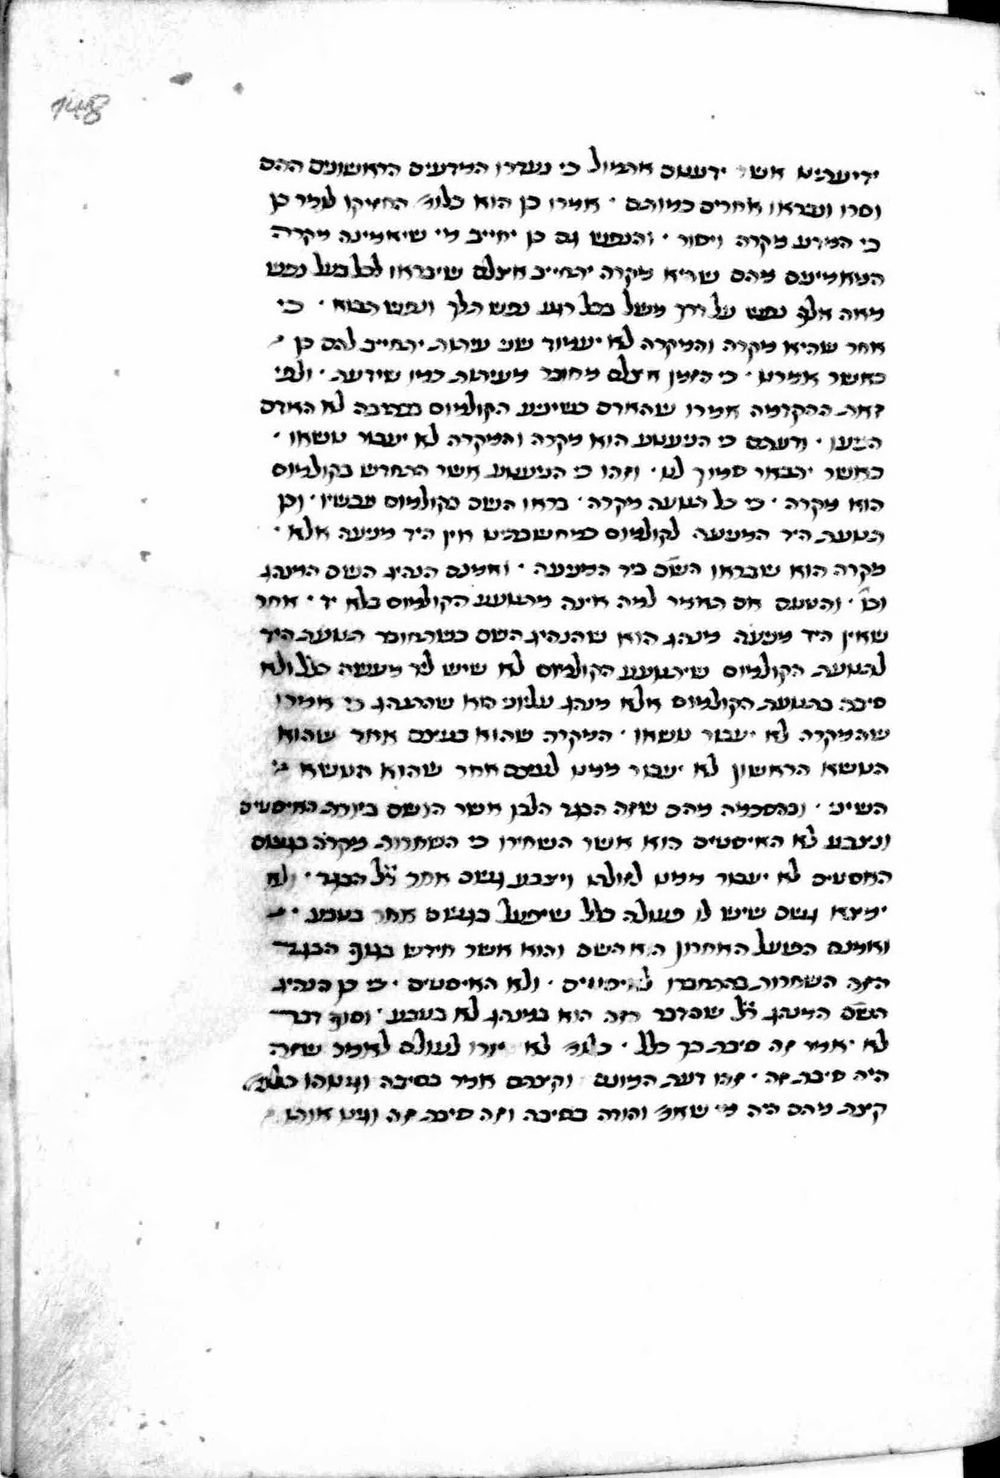 148
ידיעתינו אשר ידענום אתמול כי נעדרו המדעים הראשונים ההם
וסרו ונבראו אחרים כמותם · אמרו כן הוא כלומ׳ החזיקו לומר כן
כי המדע מקרה ויסור · והנפש גם כן יחוייב מי שיאמינה מקרה
המאמינים מהם שהיא מקרה יתחייב אצלם שיבראו לכל בעל נפש
מאה אלף נפש על דרך משל בכל רגע נפש תלך ונפש תבוא · כי
אחר שהיא מקרה והמקרה לא יעמוד שני עתות יתחייב להם כן
כאשר אמרנו · כי הזמן אצלם מחובר מעיתות כמו שידעת · ולפי
זאת ההקדמה אמרו שהאדם כשיניע הקולמוס בכתיבה לא האדם
הניעו · ודעתם כי התנועה הוא מקרה והמקרה לא יעבור נושאו ·
כאשר יתבאר סמוך לנו · וזהו כי התנועה אשר התחדש בקולמוס
הוא מקרה · כי כל תנועה מקרה · בראו השם בקולמוס עכשיו · וכן
תנועת היד המניעה לקולמוס במחשבתינו אין היד מניעה אלא ·
מקרה הוא שבראו השם ביד המניעה · ואמנם הנהיג השם המנהג
וכו׳ · והטעם אם תאמר למה אינה מתנועע הקולמוס בלא יד · אחר
שאין היד מניעה מנהג הוא שהנהיג השם כשתחובר תנועת היד
לתנועת הקולמוס שיתנועע הקולמוס לא שיש ליד מעשה כלל ולא
סיבה בתנועת הקולמוס אלא מנהג עליוני הוא שהתנהג כי אמרו
שהמקרה לא יעבור נושאו · המקרה שהוא בעצם אחד שהוא
הנושא הראשון לא יעבור ממנו לעצם אחר שהוא הנושא
השיני · ובהסכמה מהם שזה הבגד הלבן אשר הושם ביורת האיסטיס
ונצבע לא האיסטיס הוא אשר השחירו כי השחרות מקרה בגשם
האסטיס לא יעבור ממנו לזולתו ויצבע גשם אחר ר״ל הבגד · ולא
ימצא גשם שיש לו פעולה כלל שיפעל בגשם אחר בטבע ·
ואמנם הפועל האחרון הוא השם והוא אשר חידש בגוף הבגד
הזה השחרות בהתחברו לאיסטיס · ולא האיסטיס · כי כן הנהיג
השם המנהג ר״ל שהדבר הזה הוא במנהג לא בטבע · וסוף דבר
לא יאמר זה סיבת כך כלל · כלומ׳ לא יודו לעולם לאמר שזה
היה סיבת זה · זהו דעת המונם וקצתם אמר בסיבה וגנוהו כלומ׳
קצת מהם היה מי שאמ׳ והודה בסיבה וזה סיבת זה וגנו אותו